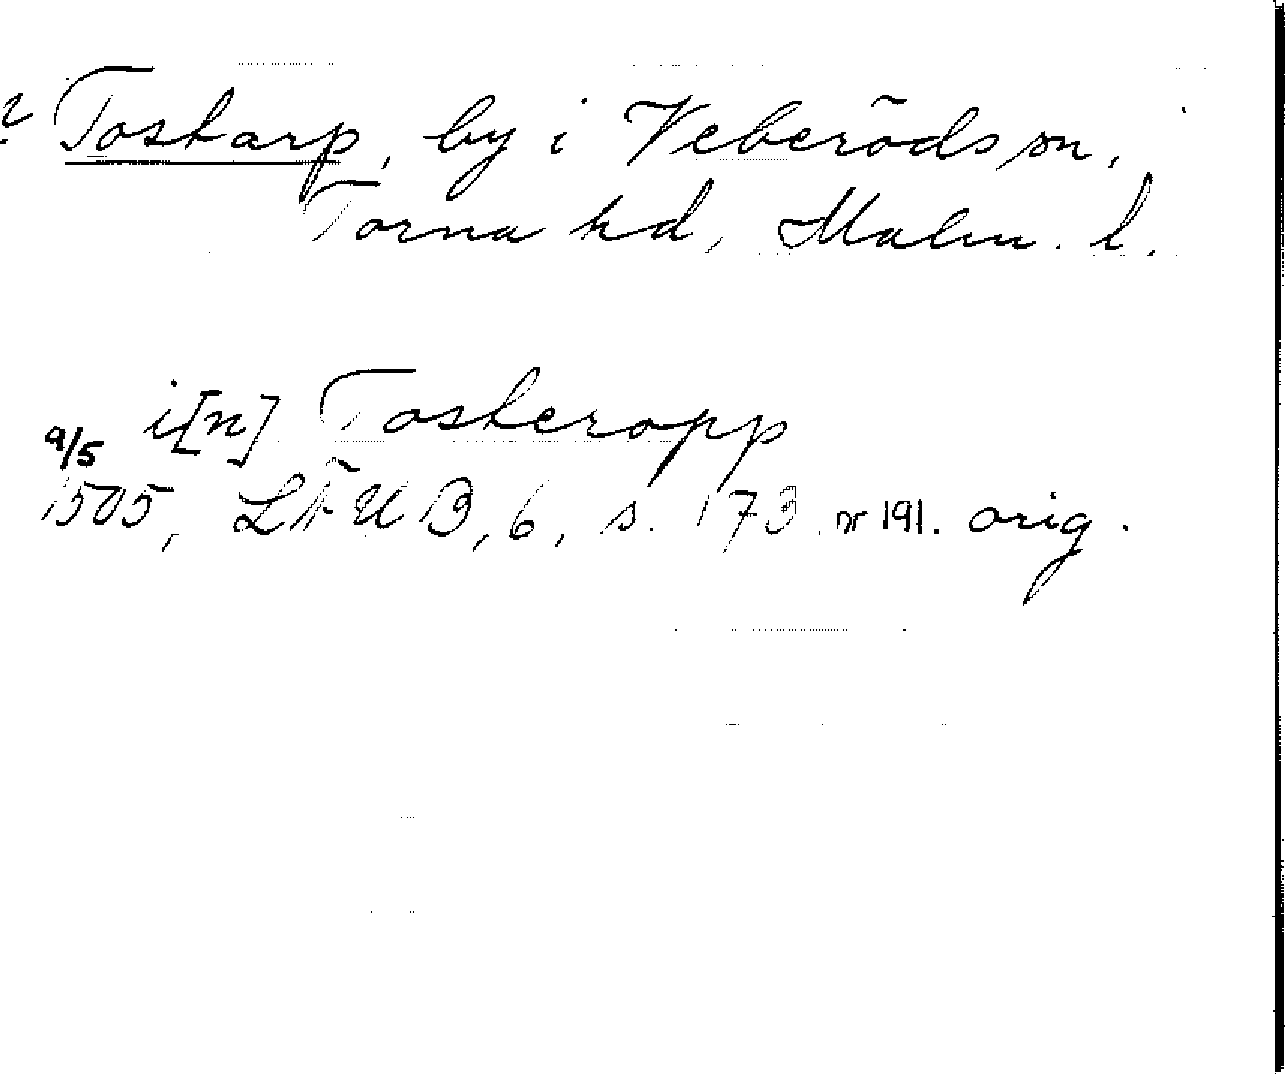 Toskarp, by i Veberöds sn,
Torna hd, Malm. l.
i[n] Toskeropp
9/5
1505, LÄUB, 6, s. 173 nr 191. orig.